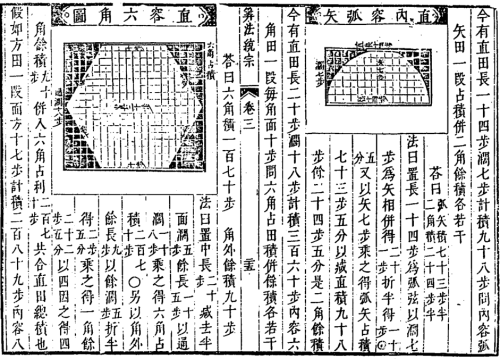 直內容弧矢
今有直田長一十四步濶七步計積九十八步問內容弧
矢田一段占積併二角餘積各若干
答曰弧矢積七十三步半
二角積二十四步半
法曰置長一十四步為弧弦以濶七
步為矢相併得二十一步折半得一十步
五分又以矢七步乘之得弧矢占積
七十三步五分以減直積九十八
步餘二十四步五分是二角餘積
今有直田長二十步濶十八步計積三百六十步內容六
角田一段每角面十步問六角占田積併餘積各若干
答曰六角積二百七十步 角外餘積九十步
算法統宗 卷三 二十五
直容六角圖
法曰置中長二十步減去半
面濶五步餘長一十五步以通
濶一十八步乘之得六角占
積二百七十步○另以角外
餘長五步濶九步折半
得二步五分乘之得一角餘
積二十二步五分以四因之得四
角餘積九十步併入六角占積二百七十步共合直田總積也
假如方田一段面方十七步計積二百八十九步內容八